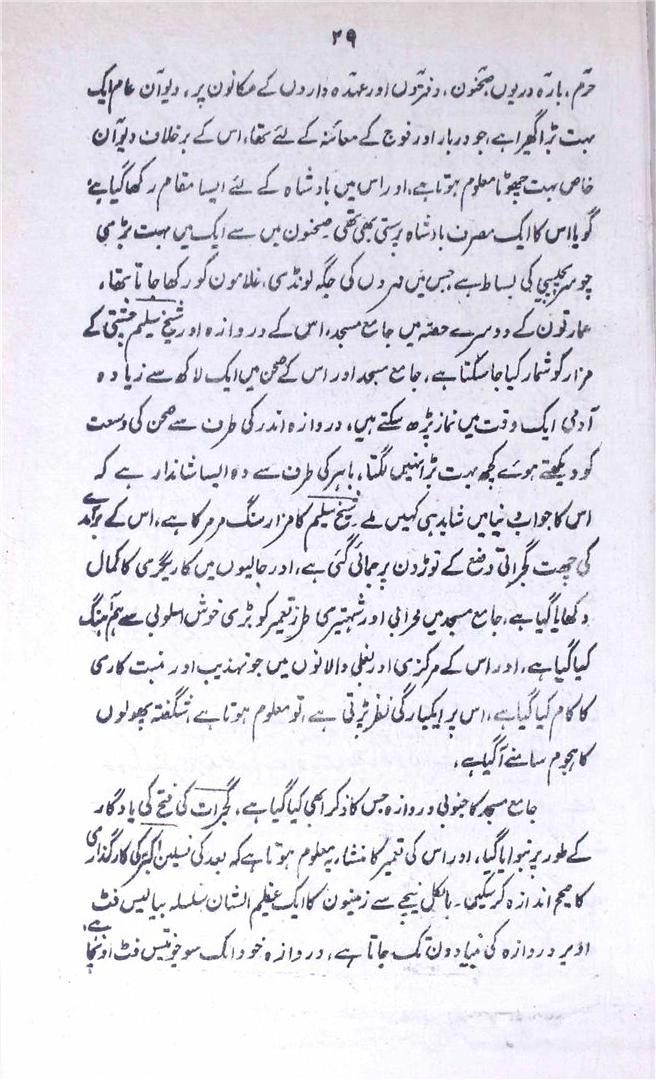 ۲۹
حرم، بارہ دریوں، صحنون، دفتروں اور عہدہ داروں کے مکانون پر، دیوان عام ایک
بہت بڑا گھیرا ہے، جو دربار اور فوج کے معائنہ کے لئے تھا، اس کے برخلاف دیوان
خاص بہت چھوٹا معلوم ہوتا ہے، اور اس میں بادشاہ کے لئے ایسا مقام رکھا گیا ہے
گویا اس کا ایک مصرف بادشاہ پرستی بھی تھی۔ صحنون میں سے ایک میں بہت بڑی
چوسر پچیسی کی بساط ہے جس میں مہروں کی جگہ لونڈی، غلامون کو رکھا جاتا تھا،
عمارتون کے دوسرے حصہ میں جامع مسجد، اس کے دروازہ اور شیخ سلیم چشتی کے
مزار کو شمار کیا جا سکتا ہے، جامع مسجد اور اس کے صحن میں ایک لاکھ سے زیادہ
آدمی ایک وقت میں نماز پڑھ سکتے ہیں، دروازہ اندر کی طرف سے صحن کی وسعت
کو دیکھتے ہوئے کچھ بہت بڑا نہیں لگتا، باہر کی طرف سے وہ ایسا شاندار ہے کہ
اس کا جواب دنیا میں شاید ہی کہیں ملے۔ شیخ سلیم کا مزار سنگ مرمر کا ہے، اس کے برآمدے
کی چھت گجراتی وضع کے توڑون پر جمائی گئی ہے، اور جالیوں میں کاریگری کا کمال
دکھایا گیا ہے، جامع مسجد میں محرابی اور شہتیری طرز تعمیر کو بڑی خوش اسلوبی سے ہم آہنگ
کیا گیا ہے، اور اس کے مرکزی اور بغلی دالانوں میں جو تہذیب اور منبت کاری
کا کام کیا گیا ہے، اس پر ایکبارگی نظر پڑتی ہے، تو معلوم ہوتا ہے، شگفتہ پھولوں
کا ہجوم سامنے آ گیا ہے،
جامع مسجد کا جنوبی دروازہ جس کا ذکر ابھی کیا گیا ہے، گجرات کی فتح کی یادگار
کے طور پر بنوایا گیا، اور اس کی تعمیر کا منشا یہ معلوم ہوتا ہے کہ بعد کی نسلین اکبر کی کارگذاری
کا صحیح اندازہ کر سکیں۔ بالکل نیچے سے زینون کا ایک عظیم الشان سلسلہ بیالیس فٹ
اوپر دروازہ کی بنیادون تک جاتا ہے، دروازہ خود ایک سو چونتیس فٹ اونچا ہے،